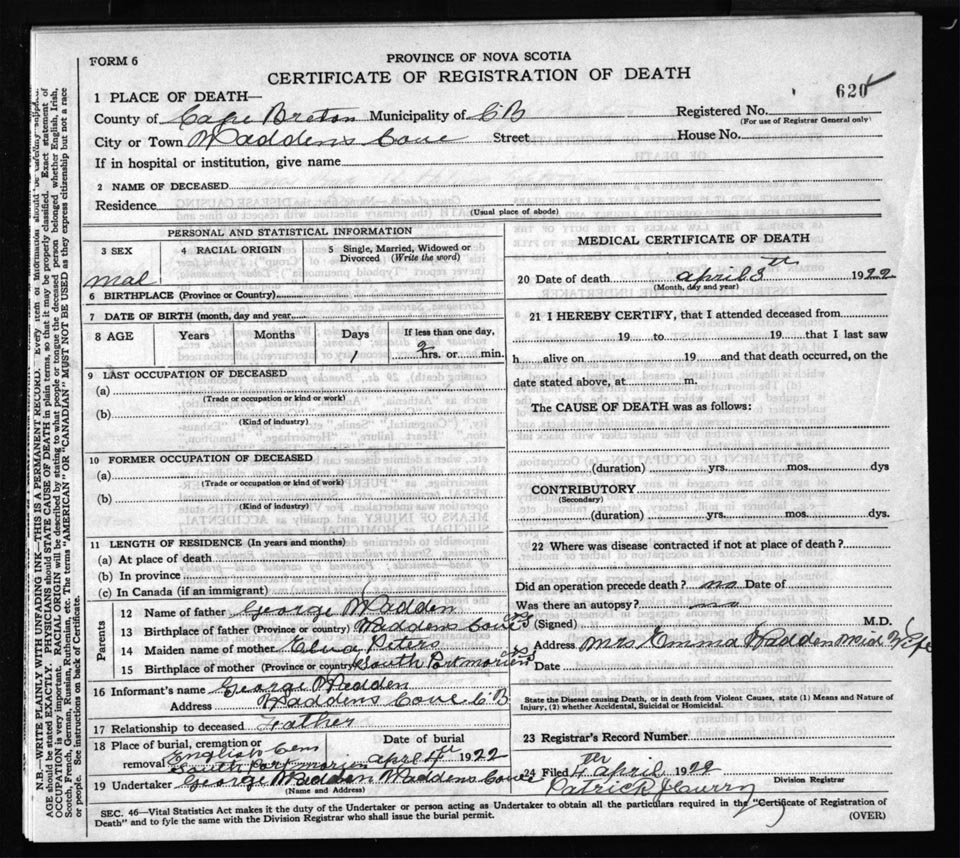 FORM 6
PROVINCE OF NOVA SCOTIA
CERTIFICATE OF REGISTRATION OF DEATH
620
1 PLACE OF DEATH—
County of Cape Breton Municipality of CB Registered No.
(For use of Registrar General only)
City or Town Maddens Cove Street House No.
If in hospital or institution, give name
2 NAME OF DECEASED
Residence
(Usual place of abode)
PERSONAL AND STATISTICAL INFORMATION
3 SEX 4 RACIAL ORIGIN 5 Single, Married, Widowed or Divorced (Write the word)
mal
6 BIRTHPLACE (Province or Country)
7 DATE OF BIRTH (month, day and year)
8 AGE Years Months Days If less than one day,
1 2 hrs. or min.
9 LAST OCCUPATION OF DECEASED
(a)
(Trade or occupation or kind or work)
(b)
(Kind of industry)
10 FORMER OCCUPATION OF DECEASED
(a)
(Trade or occupation or kind of work)
(b)
(Kind of industry)
11 LENGTH OF RESIDENCE (In years and months)
(a) At place of death
(b) In province
(c) In Canada (if an immigrant)
Parents
12 Name of father George Madden
13 Birthplace of father (Province or country) Maddens Cove
14 Maiden name of mother Peters
15 Birthplace of mother (Province or country) South Portmorien
16 Informant's name George Madden
Address Maddens Cove CB
17 Relationship to deceased Father
18 Place of burial, cremation or removal Date of burial
English Cem
South Portmorien April 4th 1922
19 Undertaker George Madden Maddens Cove
(Name and Address)
MEDICAL CERTIFICATE OF DEATH
20 Date of death april 3th 1922
(Month, day and year)
21 I HEREBY CERTIFY, that I attended deceased from
19 to 19 that I last saw
h alive on 19 and that death occurred, on the
date stated above, at m.
The CAUSE OF DEATH was as follows:
(duration) yrs. mos. dys
CONTRIBUTORY
(Secondary)
(duration) yrs. mos. dys.
22 Where was disease contracted if not at place of death?
Did an operation precede death? no Date of
Was there an autopsy? no
(Signed) M.D.
Address Mrs Emma Madden Mid Wife
Date
State the Disease causing Death, or in death from Violent Causes, state (1) Means and Nature of
Injury, (2) whether Accidental, Suicidal or Homicidal.
23 Registrar's Record Number
24 Filed 4th April 1922
Division Registrar
Patrick J Curry
SEC. 46—Vital Statistics Act makes it the duty of the Undertaker or person acting as Undertaker to obtain all the particulars required in the "Certificate of Registration of
Death" and to fyle the same with the Division Registrar who shall issue the burial permit.
(OVER)
N.B.—WRITE PLAINLY WITH UNFADING INK—THIS IS A PERMANENT RECORD. Every item of information should be carefully supplied.
AGE should be stated EXACTLY. PHYSICIANS should STATE CAUSE OF DEATH in plain terms, so that it may be properly classified. Exact statement of
OCCUPATION is very important. RACIAL ORIGIN will be described by stating to what people or tongue the deceased person belonged whether English, Irish,
Scotch, French, German, Russian, Ruthenian, etc. The terms "AMERICAN" OR "CANADIAN" MUST NOT BE USED as they express citizenship but not a race
or people. See instructions on back of Certificate.